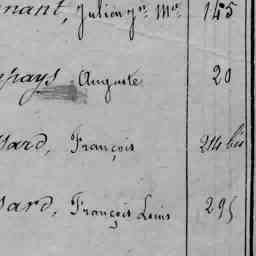 nant, Julien Jn. Mie. 145
pays Auguste 20
sard, François 214 bis
sard, François Louis 295